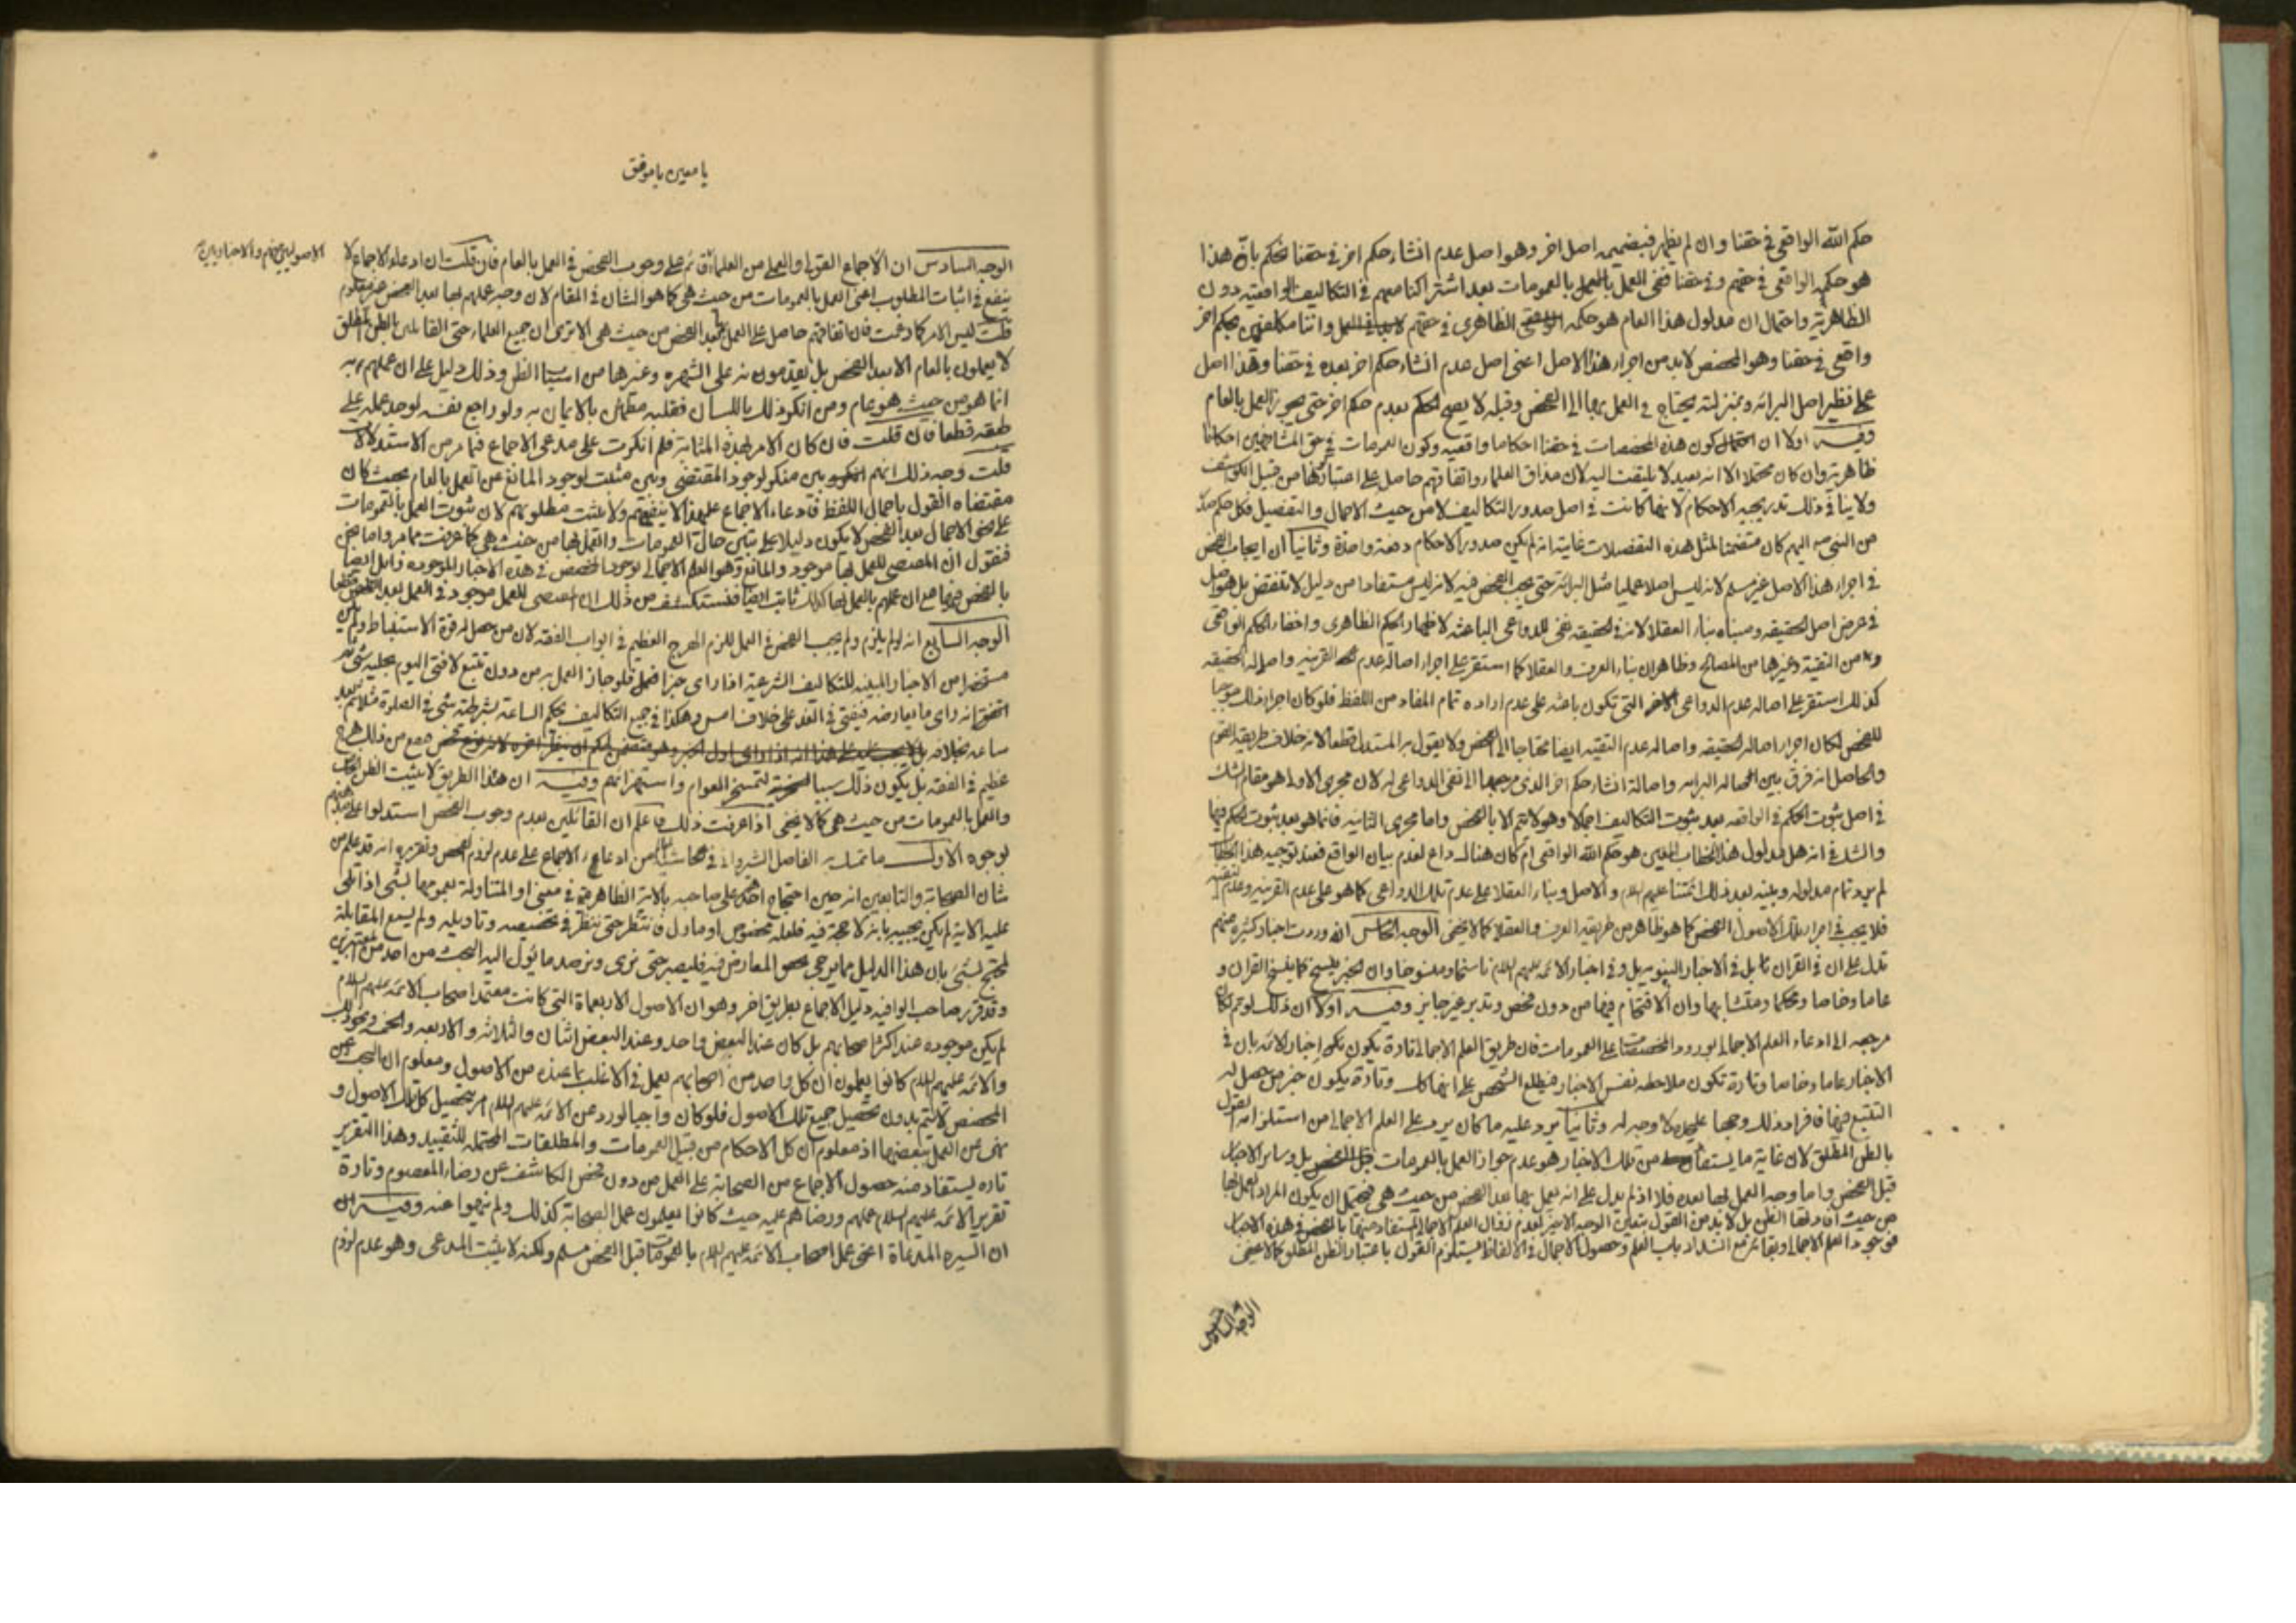 حكم الله الواقعي في حقنا وان لم يظهر فبضميمه اصل اخر وهو اصل عدم انشاء حكم اخر في حقنا نحكم بان هذا
هو حكمه الواقعي في حقهم وفي حقنا ففي العمل بالعمومات بعد اشتراكنا معهم في التكاليف الواقعيه دون
الظاهرية واحتمال ان مدلول هذا العام هو حكمه الظاهري في حقهم واننا مكلفون بحكم اخر
واقعي في حقنا وهو المخصص لابد من اجراء هذا الاصل اعني اصل عدم انشاء حكم اخر بعده في حقنا وهذا اصل
على نظير اصل البرائه وبمنزلته يحتاج في العمل بها الى الفحص وقبله لا يصح الحكم بعدم حكم اخر حتى يجوز العمل بالعام
وفيه اولا ان احتمال كون هذه المخصصات في حقنا احكاما واقعيه وكون العمومات في حق المشافهين احكاما
ظاهرية وان كان محتملا الا انه بعيد لا يلتفت اليه لان مذاق العلماء واتفاقهم حاصل على اعتبار كلها من قبيل الكواشف
ولا ينافي ذلك تدريجيه الاحكام لانها كانت في اصل صدور التكاليف لا من حيث الاجمال والتفصيل فكل حكم صدر
من النبي ص اليهم كان متضمنا لمثل هذه التفصيلات غايته انه لم يكن صدور الاحكام دفعة واحدة وثانيا ان ايجاب الفحص
في اجراء هذا الاصل غير مسلم لانه ليس اصلا عمليا مثل البرائه حتى يجب الفحص فيه لانه ليس مستفادا من دليل لا تنقض بل هو اصل
في عرض اصل الحقيقه ومبناه بناء العقلاء لانه في الحقيقه نفي للدواعي الباعثه لاظهار الحكم الظاهري واخفاء الحكم الواقعي
من التقية وغيرها من المصالح وظاهر ان بناء العرف والعقلا كما استقر على اجراء اصاله عدم القرينه واصاله الحقيقه
كذلك استقر على اصاله عدم الدواعي الاخر التي تكون باعثه على عدم اراده تمام المفاد من اللفظ فلو كان اجراء ذلك موجبا
للفحص لكان اجراء اصاله الحقيقه واصاله عدم التقيه ايضا محتاجا الى الفحص ولا يقول به المستدل قطعا لانه خلاف طريقه القوم
والحاصل انه فرق بين اصاله البرائه واصالة انشاء حكم اخر الذي مرجعها الى نفي الدواعي له لان مجرى الاولى هو مقام الشك
في اصل ثبوت الحكم في الواقعه بعد ثبوت التكاليف اجمالا وهو لا يتم الا بالفحص واما مجرى الثانيه فانما هو بعد ثبوت الحكم فيها
والشك في انه هل مدلول هذا الخطاب المعين هو حكم الله الواقعي ام كان هناك داع لعدم بيان الواقع فعند توجيه هذا الخطاب
لم يرد تمام مدلوله وبينه بعد ذلك ائمتنا عليهم السلام والاصل وبناء العقلا على عدم تلك الدواعي كما هو على عدم القرينه وعدم التقيه
فلا يجب في اجراء تلك الاصول الفحص كما هو ظاهر من طريقه العرف والعقلا كما لا يخفى الوجه الخامس انه وردت اخبار كثيره منهم
تدل على ان في القران بل في الاخبار النبويه بل وفي اخبار الائمه عليهم السلام ناسخا ومنسوخا وان الخبر ينسخ كما ينسخ القران و
عاما وخاصا ومحكما ومتشابها وان الاقتحام فيها من دون فحص وتدبر غير جايز وفيه اولا ان ذلك لو تم لكان
مرجعه الى ادعاء العلم الاجمالي بورود المخصصات على العمومات فان طريق العلم الاجمالي تارة يكون اخبار الائمه بان في
الاخبار عاما وخاصا وتارة تكون ملاحظه نفس الاخبار فيطلع الشخص على انها كك وتارة يكون خبر من حصل له
التتبع فيها فافراد ذلك وجها عليحده لا وجه له وثانيا يرد عليه ما كان يرد على العلم الاجمالي من استلزامه القول
بالظن المطلق لان غاية ما يستفاد من تلك الاخبار هو عدم جواز العمل بالعمومات بل وساير الاخبار
قبل الفحص واما وجه العمل بها بعده فلا اذ لم يدل على انه يعمل بها بعد الفحص من حيث هي فيحتمل ان يكون المراد العمل بها
من حيث افادتها الظن بل لا بد من القول بتعين الوجه الاخير لعدم زوال العلم الاجمالي المستفاد منها بالفحص في هذه الاخبار
فوجود العلم الاجمالي وبقائه مع انسداد باب العلم وحصول الاجمال في الالفاظ يستلزم القول باعتبار الظن المطلق كما لا يخفى
الوجه السادس
يا معين يا موفق
الوجه السادس ان الاجماع القولي والعملي من العلماء قائم على وجوب الفحص في العمل بالعام فان قلت ان ادعاء الاجماع لا
الاصوليين منهم والاخباريين
ينفع في اثبات المطلوب اعني العمل بالعمومات من حيث هي كما هو الشان في المقام لان وجه عملهم بها بعد الفحص غير معلوم
قلت ليس الامر كما زعمت فان اتفاقهم حاصل على العمل بها بعد الفحص من حيث هي الا ترى ان جميع العلماء حتى القائلين بالظن المطلق
لا يعملون بالعام الا بعد الفحص بل يقدمونه على الشهره وغيرها من اسباب الظن وذلك دليل على ان عملهم به
انما هو من حيث هو عام ومن انكر ذلك باللسان فقلبه مطمئن بالايمان به ولو راجع نفسه لوجد عمله على
طبقه قطعا فان قلت فان كان الامر بهذه المثابة فلم انكرت على مدعي الاجماع فيما مر من الاستدلالات
قلت وجه ذلك انهم بين منكر لوجود المقتضي وبين مثبت لوجود المانع عن العمل بالعام بحيث كان
مقتضاه القول باجمال اللفظ فادعاء الاجماع على هذا لا ينفعهم ولا يثبت مطلوبهم لان ثبوت العمل بالعمومات
على فرض الاجمال بعد الفحص لا يكون دليلا على تبين حال العمومات والعمل بها من حيث هي كما عرفت مما مر واما نحن
فنقول ان المقتضي للعمل بها موجود والمانع وهو العلم الاجمالي بوجود المخصص في هذه الاخبار الموجوده زايل ايضا
بالفحص فيها مع ان عملهم بالعمل بها كذلك ثابت ايضا فنستكشف من ذلك ان المقتضي للعمل موجود في العمل بعد الفحص قطعا
الوجه السابع انه لو لم يلزم ولم يجب الفحص في العمل للزم الهرج العظيم في ابواب الفقه لان من حصل له قوة الاستنباط ولم يكن
مستحضرا من الاخبار المبينه للتكاليف الشرعيه اذا راى خبرا فيعمل فلو جاز العمل به من دون تتبع لافتى اليوم بحليه شيء
اتفق انه راى ما يعارضه فيفتي في الغد على خلاف امس وهكذا في جميع التكاليف يحكم الساعة بشرطيه شيء في الصلوة مثلا ثم بعد
ساعه بخلافه فيقع من ذلك هرج
عظيم في الفقه بل يكون ذلك سببا لتمسخر العوام واستهزائهم وفيه ان هذا الطريق لا يثبت الظن
والعمل بالعمومات من حيث هي كما لا يخفى اذا عرفت ذلك فاعلم ان القائلين بعدم وجوب الفحص استدلوا على مذهبهم
بوجوه الاول ما تمسك به الفاضل الشيرواني في حاشيته من ادعاء الاجماع على عدم لزوم الفحص وتقريره انه قد علم من
شان الصحابة والتابعين انه حين احتجاج احدهم على صاحبه بالاية الظاهرة في معنى او المتناولة بعمومها لشيء اذا تلي
عليه الاية لم يكن يجيبه بانه لا حجة فيه فلعله مخصوص او ماول فانتظر حتى ننظر في مخصصه وتاويله ولم يسمع المقابلة
لمحتج لشيء بان هذا الدليل مما يرجى المعارض فيه فليصبر حتى نرى ونرصد ما يؤل اليه البحث من احد من المعتبرين
وقد قرر صاحب الوافيه دليل الاجماع بطريق اخر وهو ان الاصول الاربعمأة التي كانت معتمد اصحاب الائمه عليهم السلام
لم يكن موجوده عند اكثر اصحابهم بل كان عند البعض واحد وعند البعض اثنان والثلاثه والاربعه والخمسه ونحو ذلك
والائمه عليهم السلام كانوا يعلمون ان كل واحد من اصحابهم يعمل في الاغلب بما عنده من الاصول ومعلوم ان البحث عن
المخصص لا يتم بدون تحصيل جميع تلك الاصول فلو كان واجبا لورد عن الائمه عليهم السلام امر بتحصيل كل تلك الاصول و
نهى عن العمل ببعضها اذ معلوم ان كل الاحكام من قبيل العمومات والمطلقات المحتمله للتقييد وهذا التقرير
تاره يستفاد منه حصول الاجماع من الصحابه على العمل من دون فحص الكاشف عن رضاء المعصوم وتارة
تقرير الائمه عليهم السلام عملهم ورضاهم عليه حيث كانوا يعلمون عمل الصحابة كذلك ولم ينهوا عنه وفيه
ان السيره المدعاة اعني عمل اصحاب الائمه عليهم السلام بالعمومات قبل الفحص مسلم ولكنه لا يثبت المدعى وهو عدم لزوم